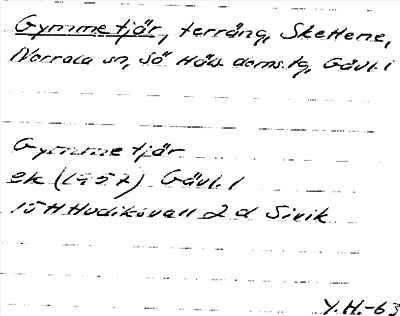 Gymmetjär, terräng, Skettene,
Norrala sn, Sö Häls doms.tg, Gävl. l
Gymmetjär
ek (1957) Gävl. l
15H Hudiksvall 2 d Sivik
Y.H.-63